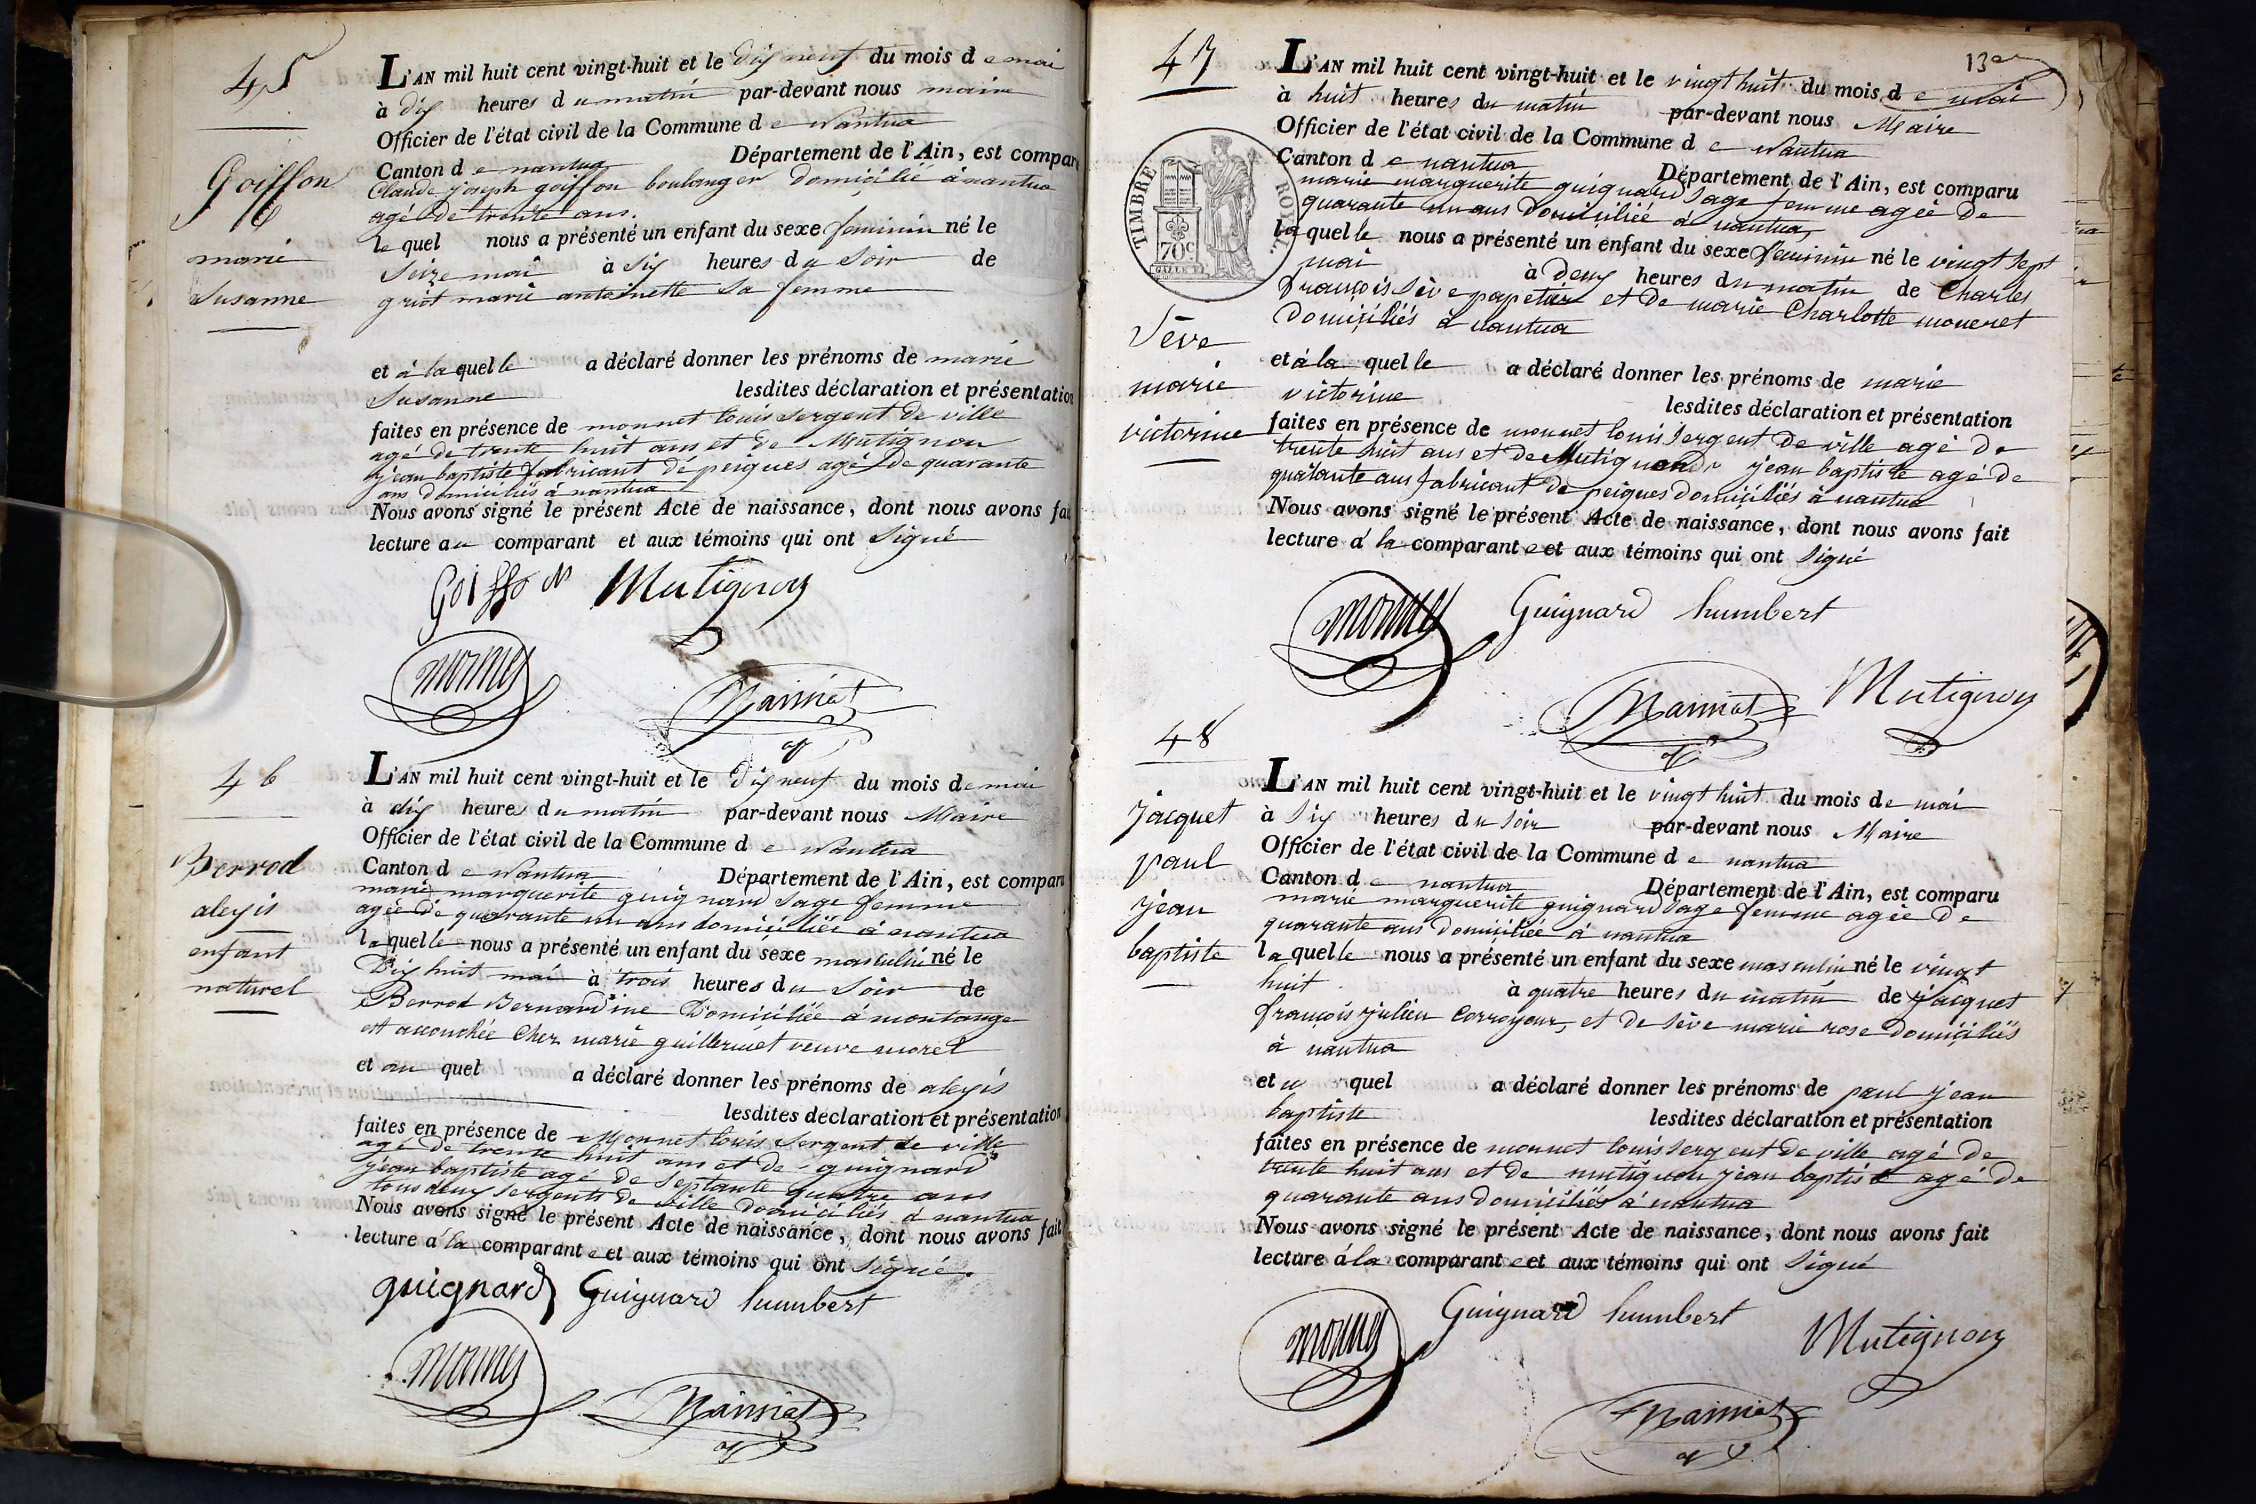 45
Goiffon
marie
Susanne
L'AN mil huit cent vingt-huit et le dix neuf du mois de mai
à dix heures du matin par-devant nous maire
Officier de l'état civil de la Commune de Nantua
Canton de nantua Département de l'Ain, est comparu
Claude joseph goiffon boulanger domicilié à nantua
agé de trente ans.
le quel nous a présenté un enfant du sexe feminin né le
Seize mai à six heures du Soir de
griot marie antoinette Sa femme
et à la quelle a déclaré donner les prénoms de marie
Susanne lesdites déclaration et présentation
faites en présence de monnet louis Sergent de ville
agé de trente huit ans et de Mutignon
jean baptiste fabricant de peignes agé de quarante
ans domiciliés à nantua
Nous avons signé le présent Acte de naissance, dont nous avons fait
lecture au comparant et aux témoins qui ont Signé
Goiffon Mutignon
monnet
46
Berrod
alexis
enfant
naturel
L'AN mil huit cent vingt-huit et le dix neuf du mois de mai
à dix heures du matin par-devant nous Maire
Officier de l'état civil de la Commune de Nantua
Canton de Nantua Département de l'Ain, est comparu
marie marguerite guignard Sage femme
agée de quarante un ans domiciliée à nantua
laquelle nous a présenté un enfant du sexe masculin né le
Dix huit mai à trois heures du Soir de
Berrod Bernardine Domiciliée à montange
est accouchée Chez marie guillermet veuve morel
et au quel a déclaré donner les prénoms de alexis
lesdites déclaration et présentation
faites en présence de Monnet louis Sergent de ville
agé de trente huit ans et de guignard
jean baptiste agé de Septante quatre ans
tous deux Sergents de ville Domiciliés à nantua
Nous avons signé le présent Acte de naissance, dont nous avons fait
lecture à la comparante et aux témoins qui ont Signé.
guignard Guignard humbert
monnet
47
13e
TIMBRE ROYAL
70c
Sève
marie
victorine
L'AN mil huit cent vingt-huit et le vingt huit du mois de mai
à huit heures du matin par-devant nous Maire
Officier de l'état civil de la Commune de Nantua
Canton de nantua Département de l'Ain, est comparu
marie marguerite guignard Sage femme agée de
quarante un ans Domiciliée à nantua,
laquelle nous a présenté un enfant du sexe feminin né le vingt Sept
mai à deux heures du matin de Charles
françois Sève papetier et de marie Charlotte moneret
Domiciliés à nantua
et à la quelle a déclaré donner les prénoms de marie
victorine lesdites déclaration et présentation
faites en présence de monnet louis Sergent de ville agé de
trente huit ans et de Mutignon jean baptiste agé de
quatante ans fabricant de peignes Domiciliés à nantua
Nous avons signé le présent Acte de naissance, dont nous avons fait
lecture à la comparante et aux témoins qui ont Signé
monnet Guignard humbert
Mutignon
48
jacquet
paul
jean
baptiste
L'AN mil huit cent vingt-huit et le vingt huit du mois de mai
à Six heures du Soir par-devant nous Maire
Officier de l'état civil de la Commune de nantua
Canton de nantua Département de l'Ain, est comparu
marie marguerite guignard Sage femme agée de
quarante ans domiciliée à nantua
laquelle nous a présenté un enfant du sexe masculin né le vingt
huit à quatre heures du matin de jacquet
françois julien Corroyeur, et de Sève marie rose domiciliés
à nantua
et u quel a déclaré donner les prénoms de paul jean
baptiste lesdites déclaration et présentation
faites en présence de monnet louis Sergent de ville agé de
trente huit ans et de mutignon jean baptiste agé de
quarante ans Domiciliés à nantua
Nous avons signé le présent Acte de naissance, dont nous avons fait
lecture à la comparante et aux témoins qui ont Signé
monnet Guignard humbert
Mutignon